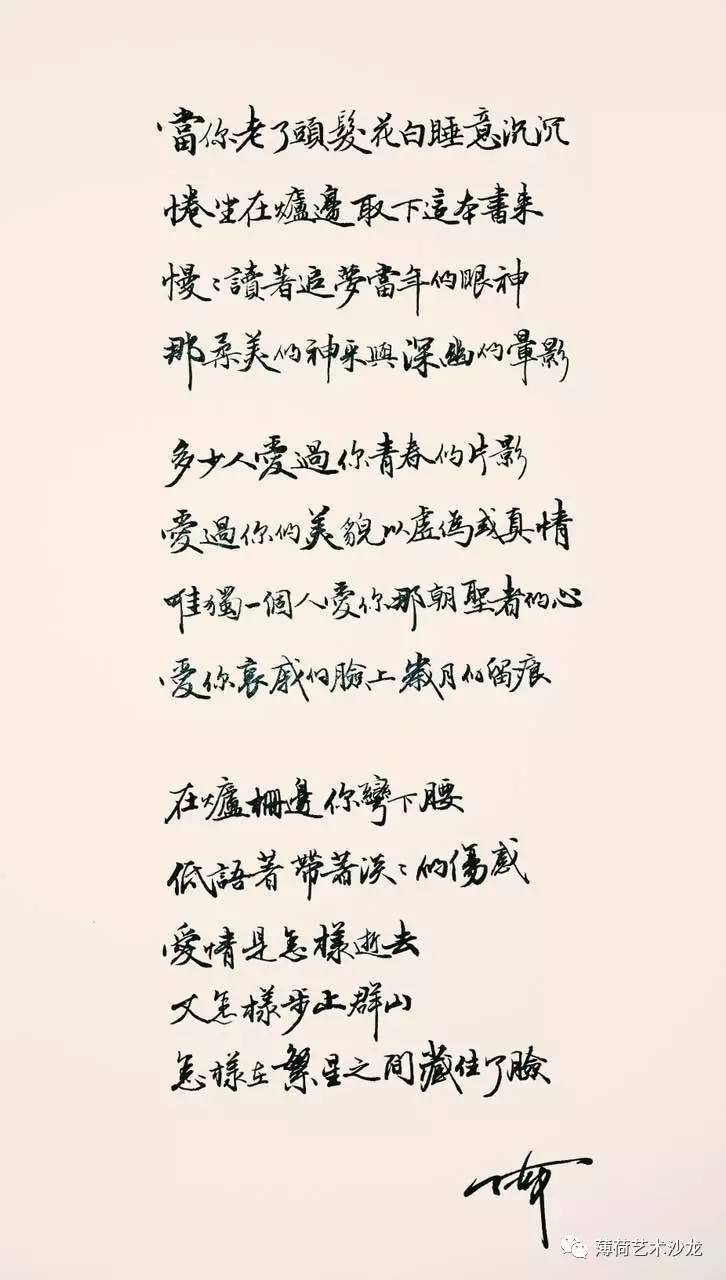 當你老了頭髮花白睡意沉沉
惓坐在爐邊取下這本書来
慢〻讀著追夢當年的眼神
那柔美的神采與深幽的暈影
多少人愛過你青春的片影
愛過你的美貌以虛偽或真情
唯獨一個人愛你那朝聖者的心
愛你哀戚的臉上歲月的留痕
在爐柵邊你彎下腰
低語著帶著淡〻的傷感
愛情是怎樣逝去
又怎樣步上群山
怎樣在繁星之間藏住了臉
薄荷艺术沙龙